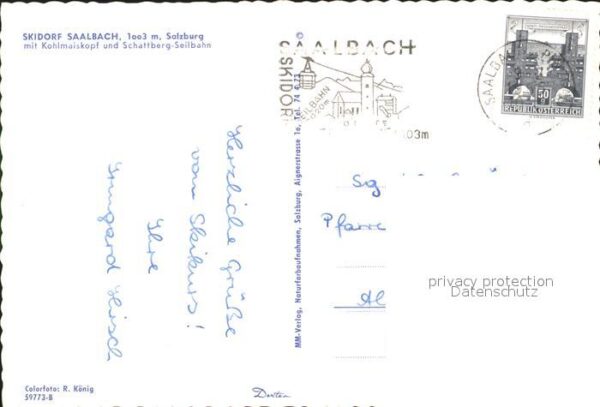 SKIDORF SAALBACH, 1003 m, Salzburg
mit Kohlmaiskopf und Schattberg-Seilbahn
Herzliche Grüße
vom Skikurs!
Ihre
Irmgard Hirsch
MM-Verlag, Naturfarbaufnahmen, Salzburg, Aignerstrasse 1a, Tel. 74 6 73
©
SAALBACH
SKIDORF
SEILBAHN
1003m
SAALBA
50
REPUBLIK ÖSTERREICH
Pfarre
privacy protection
Datenschutz
Colorfoto: R. König
59773-B